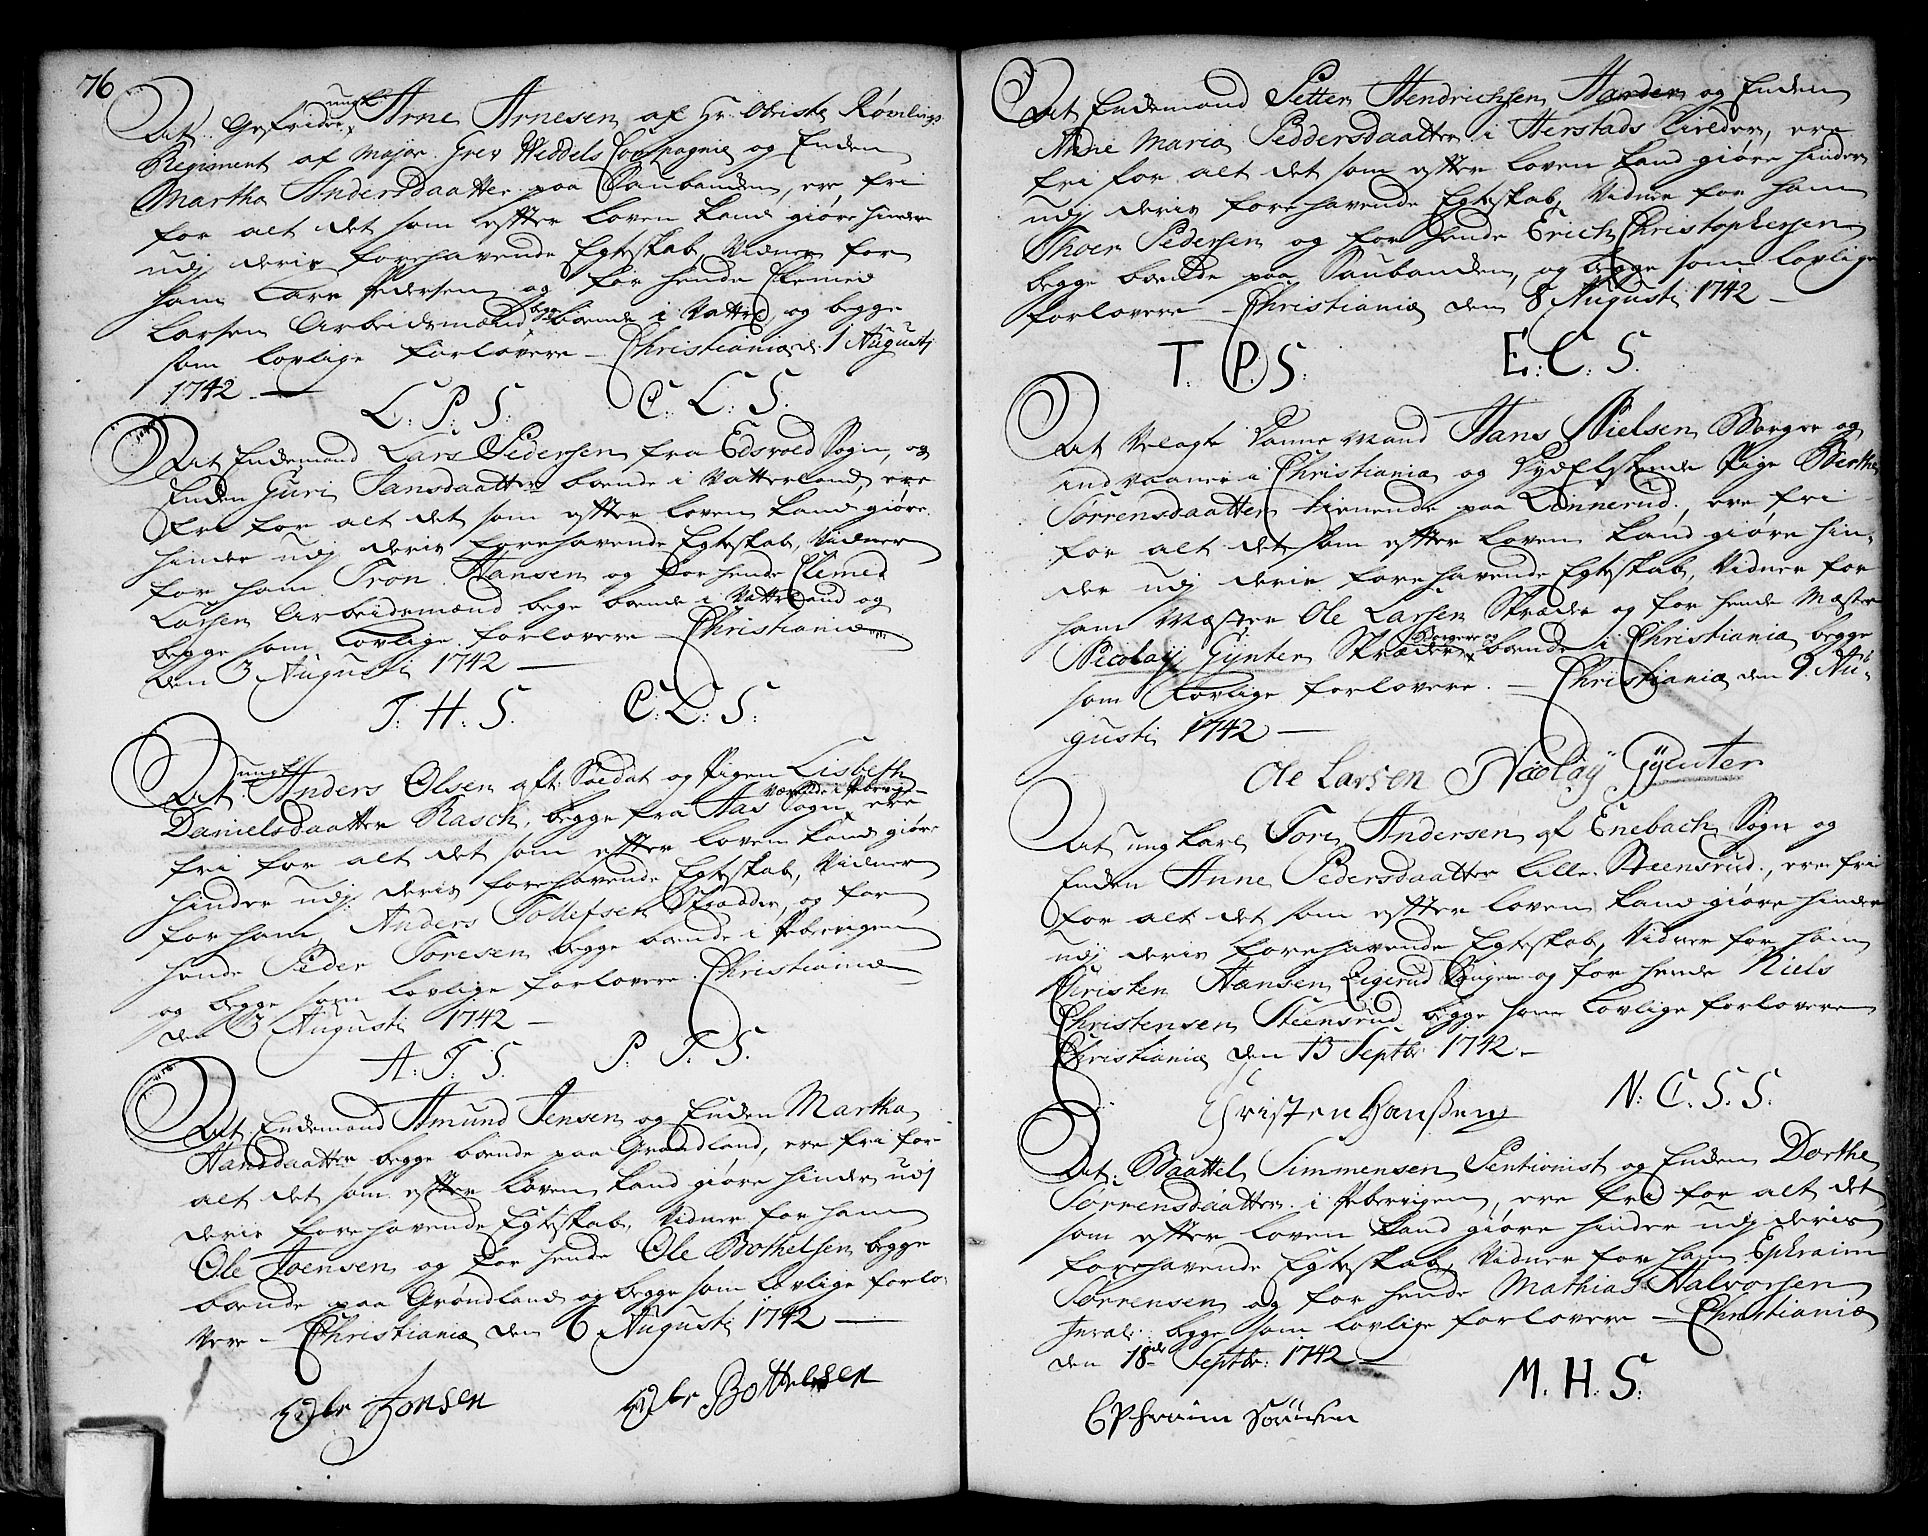 76
ungk.
At Gefrider Arne Arnesen af Hr. Obriste Rømlings
Regiment af Major Grev Weddels Compagnie og Enden
Martha Andersdaatter paa Saubanden, ere fri
for alt det som effter Loven kand giøre hinder
udj deris forehavende Egteskab, Vidner for
ham Lars Pedersen og for hende Clemed
Larsen Arbeidsmænd begge boende i Vatterl. og begge
som lovlige forlovere – Christiania d. 1 Augustj
1742 –
L. P. S. C. L. S.
At Endemand Lars Pedersen fra Edsvold Sogn, og
Enden Guri Jansdaatter boende i Vatterland, ere
fri for alt det som effter Loven kand giøre
hinder udj deris forehavende Egteskab, Vidner
for ham Tron Hansen og for hende Clemed
Larsen Arbeidsmænd bege boende i Vatterland og
begge som Lovlige forlovere – Christiania
den 3 Augusti 1742 –
T. H. S. C. L. S.
ungk.
At Anders Olsen aft. Soldat og Pigen Lisbeth
Værende i Pebervigen
Danielsdaatter Rasch, begge fra Aas Sogn, ere
fri for alt det som effter Loven kand giøre
hinder udj deris forehavende Egteskab, Vidner
for ham Anders Tollefsen Skrædder, og for
hende Peder Toresen begge boende i Pebervigen
og begge som lovlige forlovere Christiania
den 3 Augusti 1742 –
A. T. S. P. T. S.
At Endemand Amund Jensen og Enden Martha
Hansdaatter begge boende paa Grønland, ere fri for
alt det som effter Loven kand giøre hinder udj
deris forehavende Egteskab, Vidner for ham
Ole Joensen og for hende Ole Bothelsen begge
boende paa Grønland og begge som Lovlige forlo-
vere – Christiania den 6 Augusti 1742 –
Jonsen Bottelsen
At Endemand Petter Hendrichsen Harder og Enden
Anne Maria Peddersdaatter i Herstads Kirken, ere
fri for alt det som effter Loven kand giøre hinder
udj deris forehavende Egteskab, Vidner for ham
Thoer Pedersen og for hende Erich Christophersen
begge boende paa Saubanden, og begge som lovlige
forlovere – Christiania den 8 Augusti 1742 –
T. P. S. E. C. S.
At Velagte Danne Mand Hans Nielsen Borger og
indvaaner i Christiania og Dydelskende Pige Berthe
Sørrensdaatter tienende paa Linnerud, ere fri
for alt det som effter Loven kand giøre hin-
der udj deris forehavende Egteskab, Vidner for
ham Mæster Ole Larsen Skræder og for hende Mæster
Borgere og
Nicolaij Gÿnter Skræder boende i Christiania begge
som Lovlige forlovere. – Christiania den 9 Au-
gusti 1742 –
Ole Larsen Nicolaÿ Gÿnter
At ung karl Tore Andersen af Enebach Sogn og
Enden Anne Pedersdaatter Lille Steensrud, ere fri
for alt det som effter Loven kand giøre hinder
udj deris forehavende Egteskab, Vidner for ham
Christen Hansen og for hende Niels
Christensen Steensrud begge som Lovlige forlovere
Christiania den 13 Septbr 1742 –
Christen Hansen N. C. S. S.
At Baattel Simmensen Pentionist og Enden Dorthe
Sørrensdaatter i Pebervigen, ere fri for alt det
som effter Loven kand giøre hinder udj deris
forehavende Egteskab, Vidner for ham Ephraim
Sørrensen og for hende Mathias Halvorsen
begge som lovlige forlovere – Christiania
den 18de Septbr: 1742 –
M. H. S.
Ephraim Sörensen